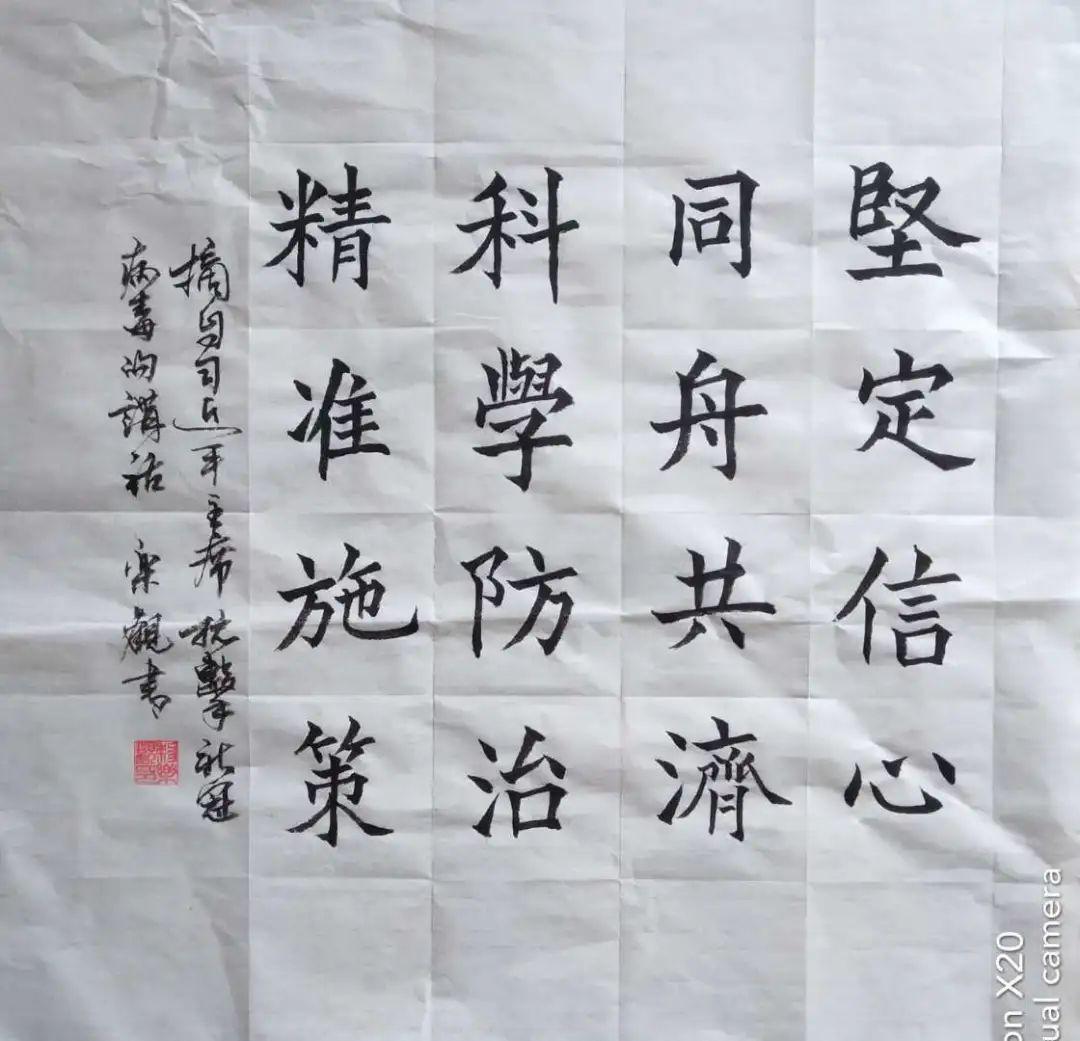 堅定信心
同舟共濟
科學防治
精准施策
摘自习近平主席抗擊新冠
病毒的講話 樂觀書
on X20
ual camera